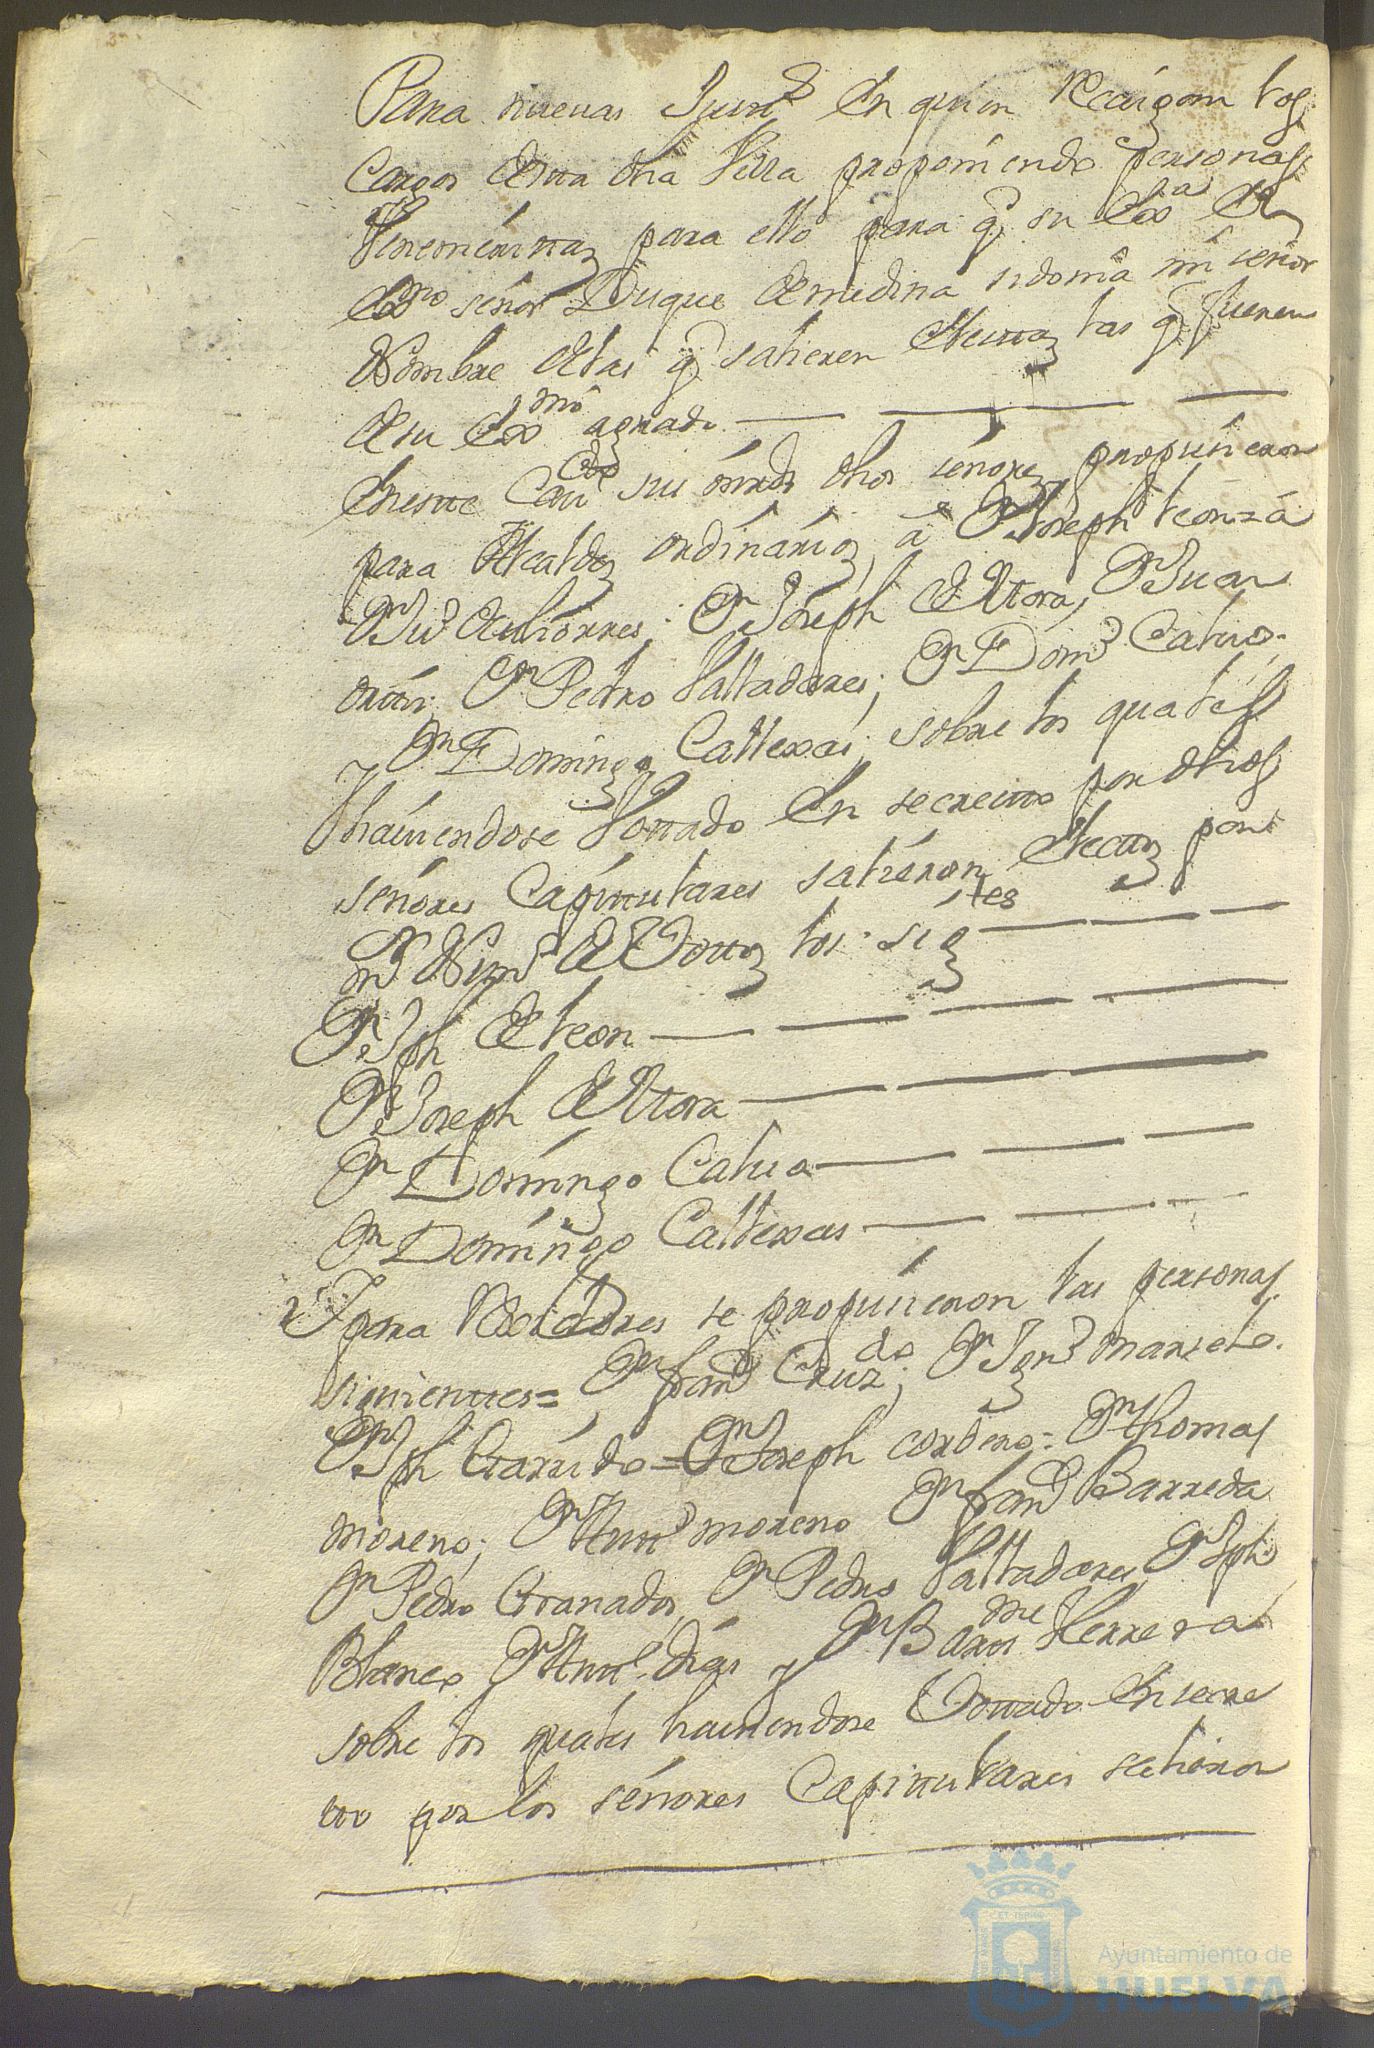 Para nuevas Jusn.s En quien Recaigan los
Cargos Desta dha Villa proponiendo personas
Venemeritas para ello para q su Exa El
Exmo señor Duque de medina sidonia mi señor
Nombre de las q salieren Electas las q fueren
de su Exmo agrado
En este Cavdo sus mrds dhos señores propusieron
para Alcaldes ordinarios, a Dn Joseph leon za
Dn Joseph de Mora, Dn Juan
ortiz; Dn Pedro Valladares; Dn Domo Calvo.
Dn Domingo Callexas; sobre los quales
Y haviendose Vottado En secretto por dhos
señores Capittulares salieron Electos por
mr Numo de Vottos los sigtes
Dn Jph de leon
Dn Joseph de Mora
Dn Domingo Calvo
Dn Domingo Callexas
Y para Rexidores se propusieron las personas
siguienttes= Dn Franco Cruzdo; Dn Igno marselo.
Dn Jph Garrido = Dn Joseph cordero = Dn thomas
moreno; Dn Antto moreno Dn Franco Barreda
Dn Pedro Granados, Dn Pedro Valladares, Dn Jph
Blanco Dn Dias y Dn Barme Herrera
sobre los quales haviendose Vottado En secre
tto por los señores Capittulares salieron
Ayuntamiento de
HUELVA